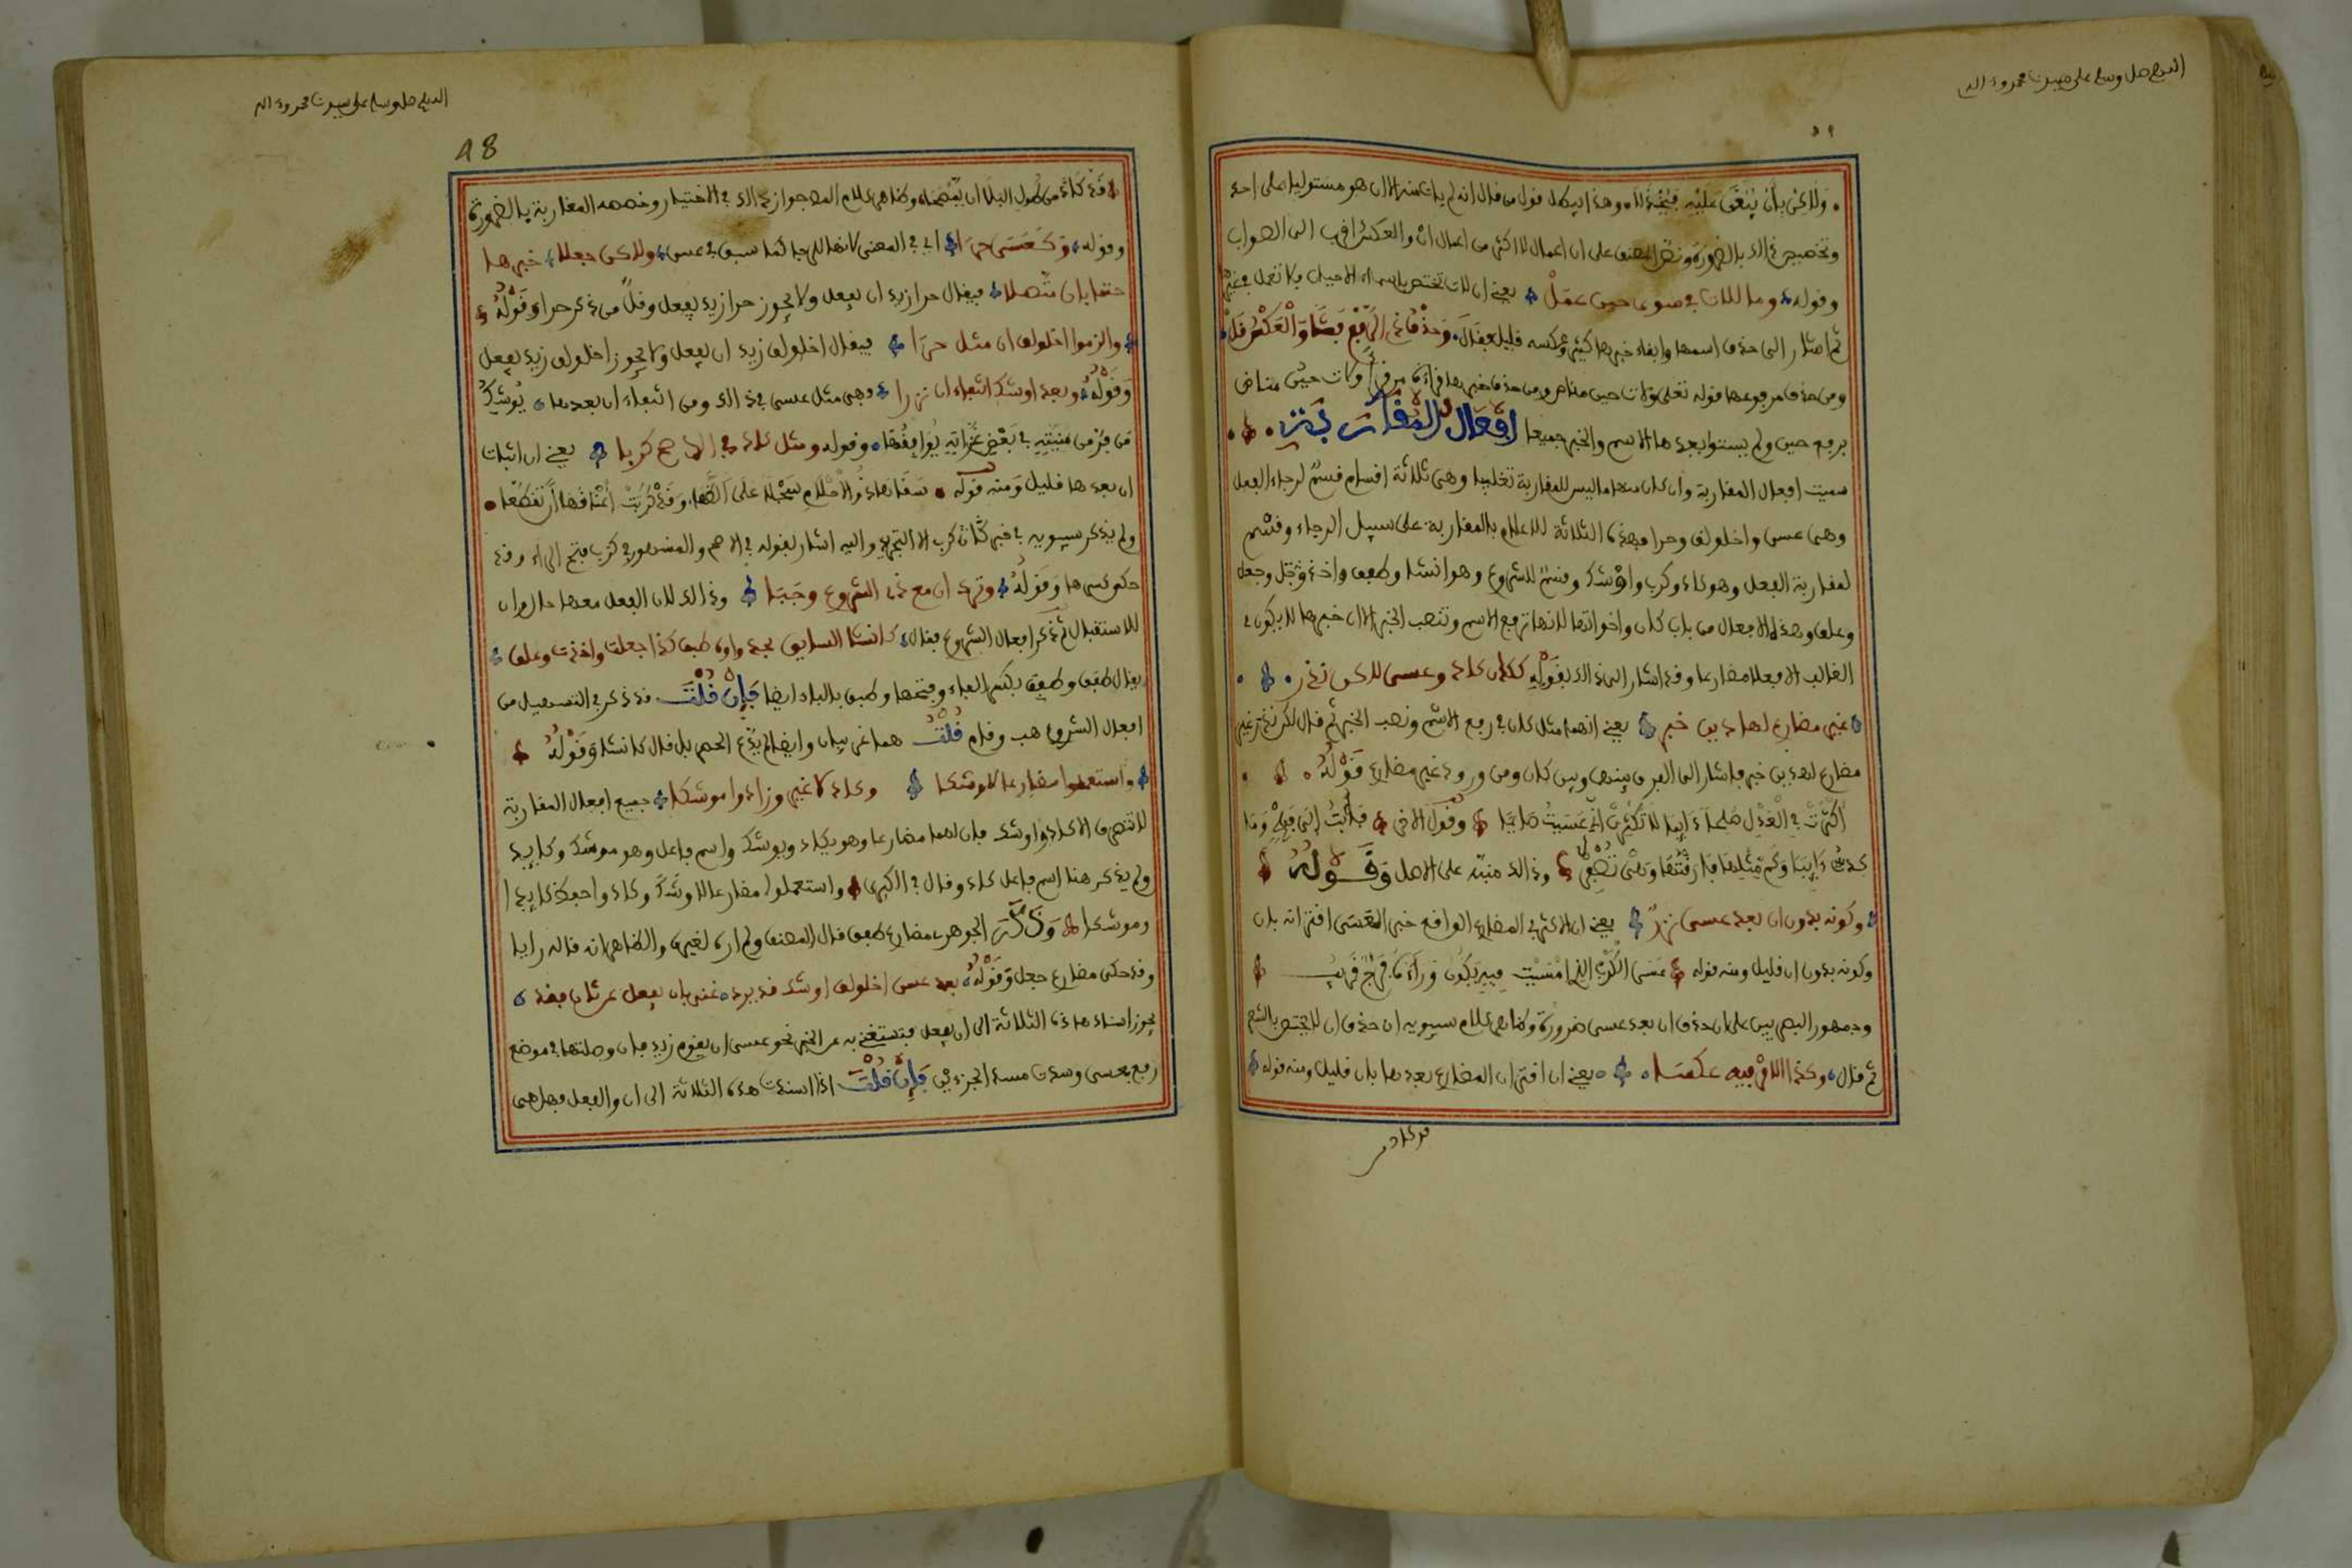 اللهم صل وسلم على سيدنا محمد وءاله
ولاكن بان يبغى عليه فيخذلا وهذا يبطل قول من قال انه لم يات منه الا ان هو مستوليا على احد
وتخصيص ذالك بالضرورة ونص المصنف على ان اعمال لا اكثر من اعمال ان والعكس اقرب الى الصواب
وقوله وما للات في سوى حين عمل يعني ان لات تختص باسماء الاحيان ولا تعمل في غيرها
ثم اشار الى حذف اسمها وابقاء خبرها كثير وعكسه قليل فقال وحذف ذي الرفع فشا والعكس قل
ومن حذف مرفوعها قوله تعلى ولات حين مناص ومن حذف خبرها قراءة من قرأ ولات حين مناص
برفع حين ولم يثبتوا بعدها الاسم والخبر جميعا افعال المقاربة
سميت افعال المقاربة وان كان منها ما ليس للمقاربة تغليبا وهي ثلاثة اقسام قسم لرجاء الفعل
وهي عسى واخلولق وحرا فهذه الثلاثة للاعلام بالمقاربة على سبيل الرجاء وقسم
لمقاربة الفعل وهو كاد وكرب واوشك وقسم للشروع وهو انشا وطفق واخذ وجعل
وعلق وهذه الافعال من باب كان واخواتها لانها ترفع الاسم وتنصب الخبر الا ان خبرها لا يكون في
الغالب الا فعلا مضارعا وقد اشار الى ذالك بقوله ككان كاد وعسى لاكن ندر
غير مضارع لهاذين خبر يعني انهما مثل كان في رفع الاسم ونصب الخبر ثم قال لكن ندر غير
مضارع لهذين خبر فاشار الى الفرق بينهما وبين كان ومن ورود غير مضارع قوله
اكثرت في العذل ملحا دائما لا تكثرن اني عسيت صائما وقول الاخر فابت الى فهم وما
كدت ءايبا وكم مثلها فارقتها وهي تصفر وذالك منبه على الاصل وقوله
وكونه بدون ان بعد عسى نزر يعني ان الاكثر في المضارع الواقع خبر العسى اقترانه بان
وكونه بدون ان قليل ومنه قوله عسى الكرب الذي امسيت فيه يكون وراءه فرج قريب
وجمهور البصريين على ان حذف ان بعد عسى ضرورة وظاهر كلام سيبويه ان حذف ان لا يختص بالشعر
ثم قال وكاد الامر فيه عكسا يعني ان اقتران المضارع بعدها بان قليل ومنه قوله
قد كاد من
اللهم صل وسلم على سيدنا محمد وءاله
98
قد كاد من طول البلا ان يمصحا وظاهر كلام المص جواز ذالك في الاختيار وخصصه المغاربة بالضرورة
وقوله وكعسى حرا اي في المعنى لانها للرجا كما سبق في عسى ولاكن جعلا خبرها
حتما بان متصلا فيقال حرا زيد ان يفعل ولا يجوز حرا زيد يفعل وقل من ذكر حرا وقوله
والزموا اخلولق ان مثل حرا فيقال اخلولق زيد ان يفعل ولا يجوز اخلولق زيد يفعل
وقوله وبعد اوشك انتفاء ان نزرا وهي مثل عسى في ذالك ومن انتفاء ان بعدها يوشك
من فر من منيته في بعض غراته يوافقها وقوله ومثل كاد في الاصح كربا يعني ان اثبات
ان بعدها قليل ومنه قوله سقاها ذوو الاحلام سجلا على الظما وقد كربت اعناقها ان تقطعا
ولم يذكر سيبويه في خبر كرب الا التجريد واليه اشار بقوله في الاصح والمشهور في كرب فتح الراء وقد
حكي كسرها وقوله وترك ان مع ذي الشروع وجبا وذالك لان الفعل معها حال وان
للاستقبال ثم ذكر افعال الشروع فقال كانشا السايق يحدو وطفق كذا جعلت واخذت وعلق
يقال طفق وطفق بكسر الفاء وفتحها وطبق بالباء ايضا فان قلت قد ذكر في التسهيل من
افعال الشروع هب وقام قلت هما غريبان وايضا لم يدع الحصر بل قال كانشا وقوله
واستعملوا مضارعا لاوشكا وكاد لا غير وزادوا موشكا جميع افعال المقاربة
لا تتصرف الا كاد واوشك فان لهما مضارعا وهو يكاد ويوشك واسم فاعل وهو موشك وكايد
ولم يذكر هنا اسم فاعل كاد وقال في الكبرى واستعملوا مضارعا لاوشك وكاد واحفظ كايدا
وموشكا وذكر الجوهري مضارع طفق قال المصنف ولم اره لغيره والظاهر انه قاله رايا
وقد حكى مضارع جعل وقوله بعد عسى اخلولق اوشك قد يرد غنى بان يفعل عن ثان فقد
يجوز اسناد هاذه الثلاثة الى ان يفعل فتستغني به عن الخبر نحو عسى ان يقوم زيد فان وصلتها في موضع
رفع بعسى وسدت مسد الجزءين فان قلت اذا اسندت هذه الثلاثة الى ان والفعل فهل هي